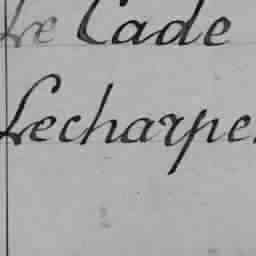 Le Cade
Lecharpe.